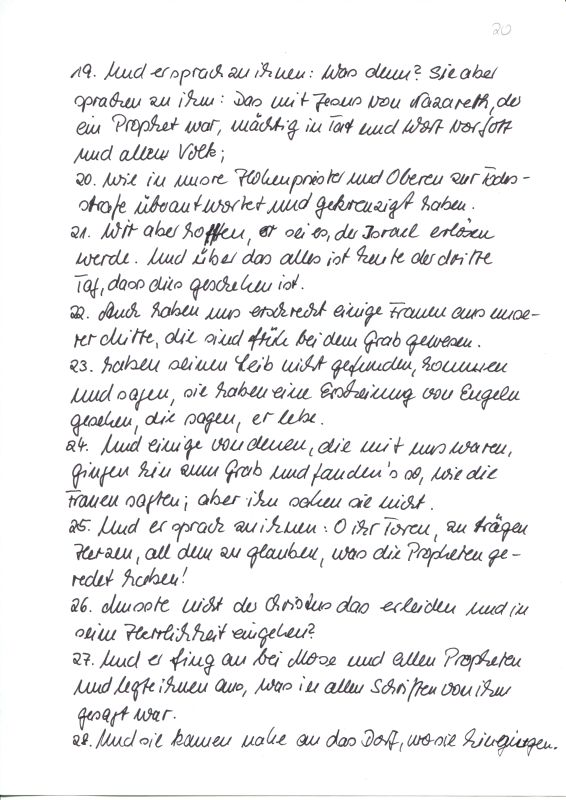 20
19. Und er sprach zu ihnen: Was denn? Sie aber
sprachen zu ihm: Das mit Jesus von Nazareth, der
ein Prophet war, mächtig in Tat und Wort vor Gott
und allem Volk;
20. wie in unsre Hohenpriester und Oberen zur Todes-
strafe überantwortet und gekreuzigt haben.
21. Wir aber hoffen, er sei es, der Israel erlösen
werde. Und über das alles ist heute der dritte
Tag, dass dies geschehen ist.
22. Auch haben uns erschreckt einige Frauen aus unse-
rer Mitte, die sind früh bei dem Grab gewesen.
23. haben seinen Leib nicht gefunden, kommen
und sagen, sie haben eine Erscheinung von Engeln
gesehen, die sagen, er lebe.
24. Und einige von denen, die mit uns waren,
gingen hin zum Grab und fanden's so, wie die
Frauen sagten; aber ihn sahen sie nicht.
25. Und er sprach zu ihnen: O ihr Toren, zu trägen
Herzen, all dem zu glauben, was die Propheten ge-
redet haben!
26. Musste nicht der Christus das erleiden und in
seine Herrlichkeit eingehen?
27. Und er fing an bei Mose und allen Propheten
und legte ihnen aus, was in allen Schriften von ihm
gesagt war.
28. Und sie kamen nahe an das Dorf, wo sie hingingen.